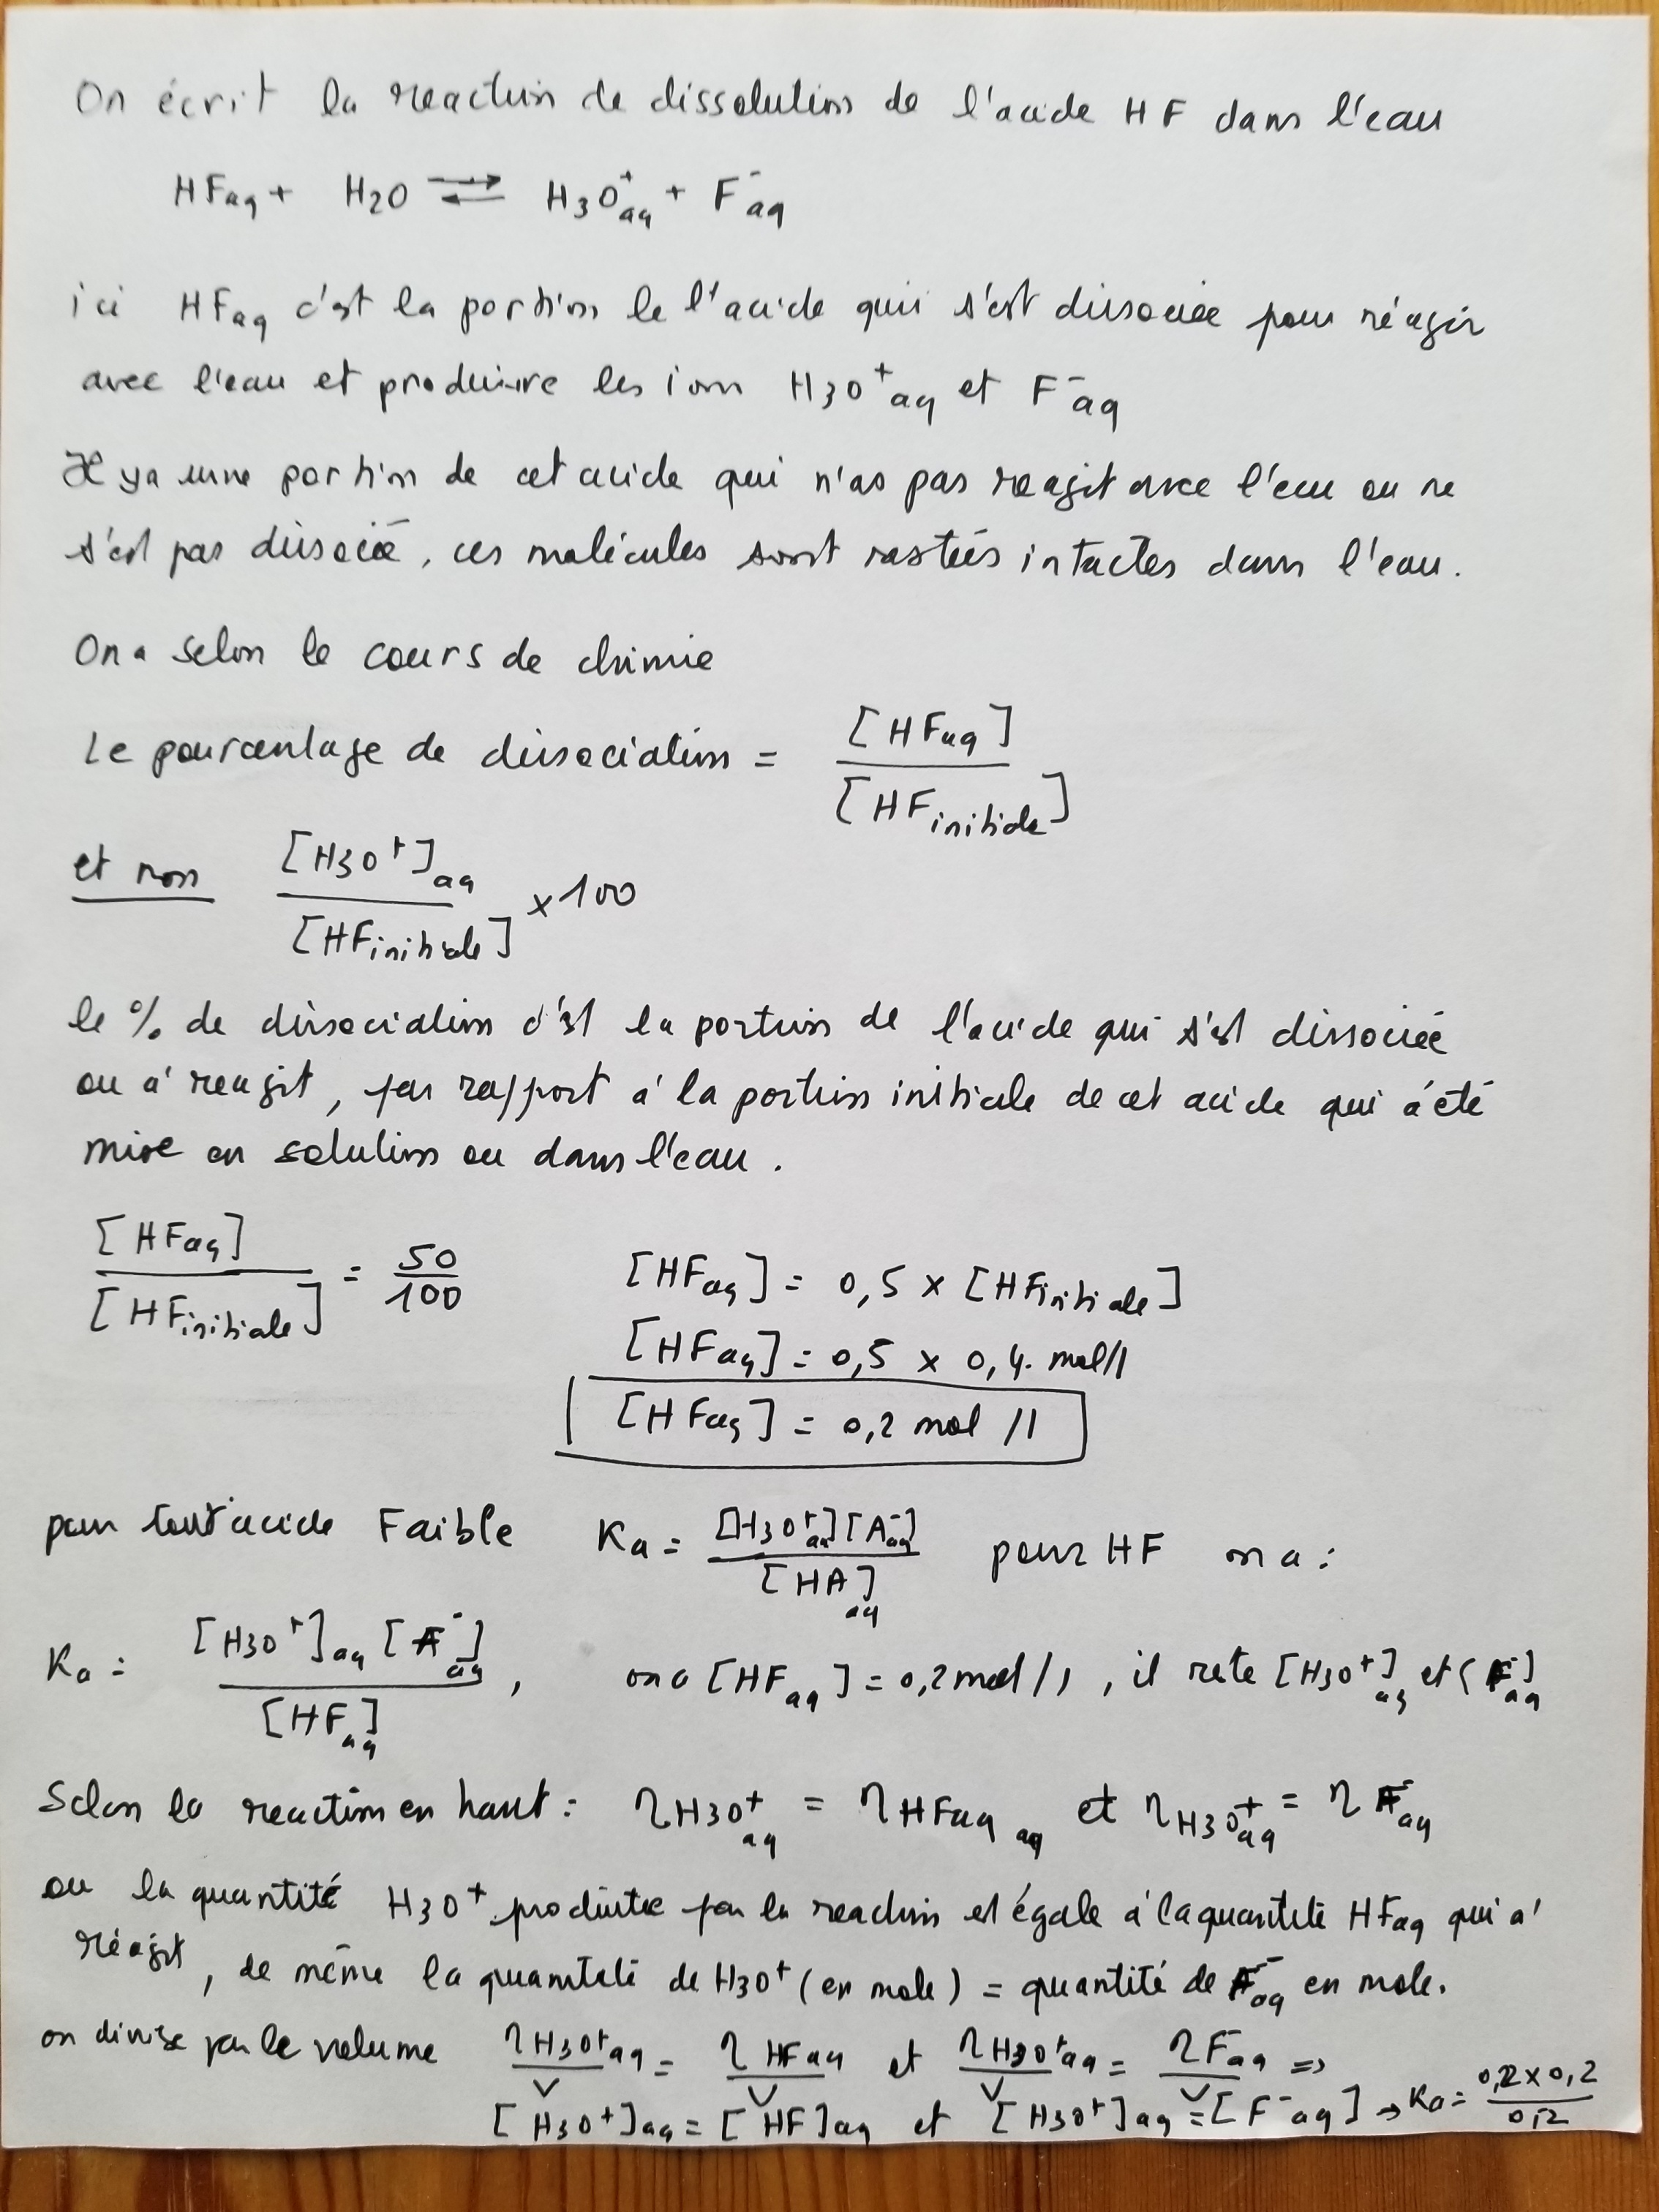 On écrit la reaction de dissolution de l'acide HF dans l'eau
HFaq + H2O ⇌ H3O+aq + F-aq
ici HFaq c'est la portion de l'acide qui s'est dissociée pour réagir
avec l'eau et produire les ions H3O+aq et F-aq
Il ya une portion de cet acide qui n'as pas reagit avec l'eau ou ne
s'est pas dissocié, ces molécules sont restées intactes dans l'eau.
On a selon le cours de chimie
Le pourcentage de dissociation = [HFaq] / [HFinitiale]
et non [H3O+]aq / [HFinitiale] x 100
le % de dissociation c'est la portion de l'acide qui s'est dissociée
ou à reagit, par rapport à la portion initiale de cet acide qui à été
mise en solution ou dans l'eau.
[HFaq] / [HFinitiale] = 50/100 [HFaq] = 0,5 x [HFinitiale]
[HFaq] = 0,5 x 0,4 mol/l
[HFaq] = 0,2 mol/l
pour tout acide Faible Ka = [H3O+aq][A-aq] / [HA]aq pour HF on a :
Ka = [H3O+]aq [F-aq] / [HFaq], on a [HFaq] = 0,2 mol/l, il reste [H3O+]aq et [F-aq]
Selon la reaction en haut : ηH3O+aq = ηHFaq aq et ηH3O+aq = ηF-aq
ou la quantité H3O+ produite par la reaction est égale à la quantité HFaq qui a'
réagit, de même la quantité de H3O+ (en mole) = quantité de F-aq en mole.
on divise par le volume ηH3O+aq / V = ηHFaq / V et ηH3O+aq / V = ηF-aq / V =>
[H3O+]aq = [HF]aq et [H3O+]aq = [F-aq] → Ka = 0,2 x 0,2 / 0,2